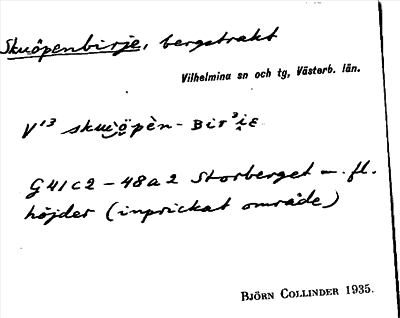 Skuöpenbirje, bergstrakt
Vilhelmina sn och tg, Västerb. län.
V¹³ skuöpèn-Birʾie
G41c2 – 48a2 Storberget m. fl.
höjder (inprickat område)
BJÖRN COLLINDER 1935.